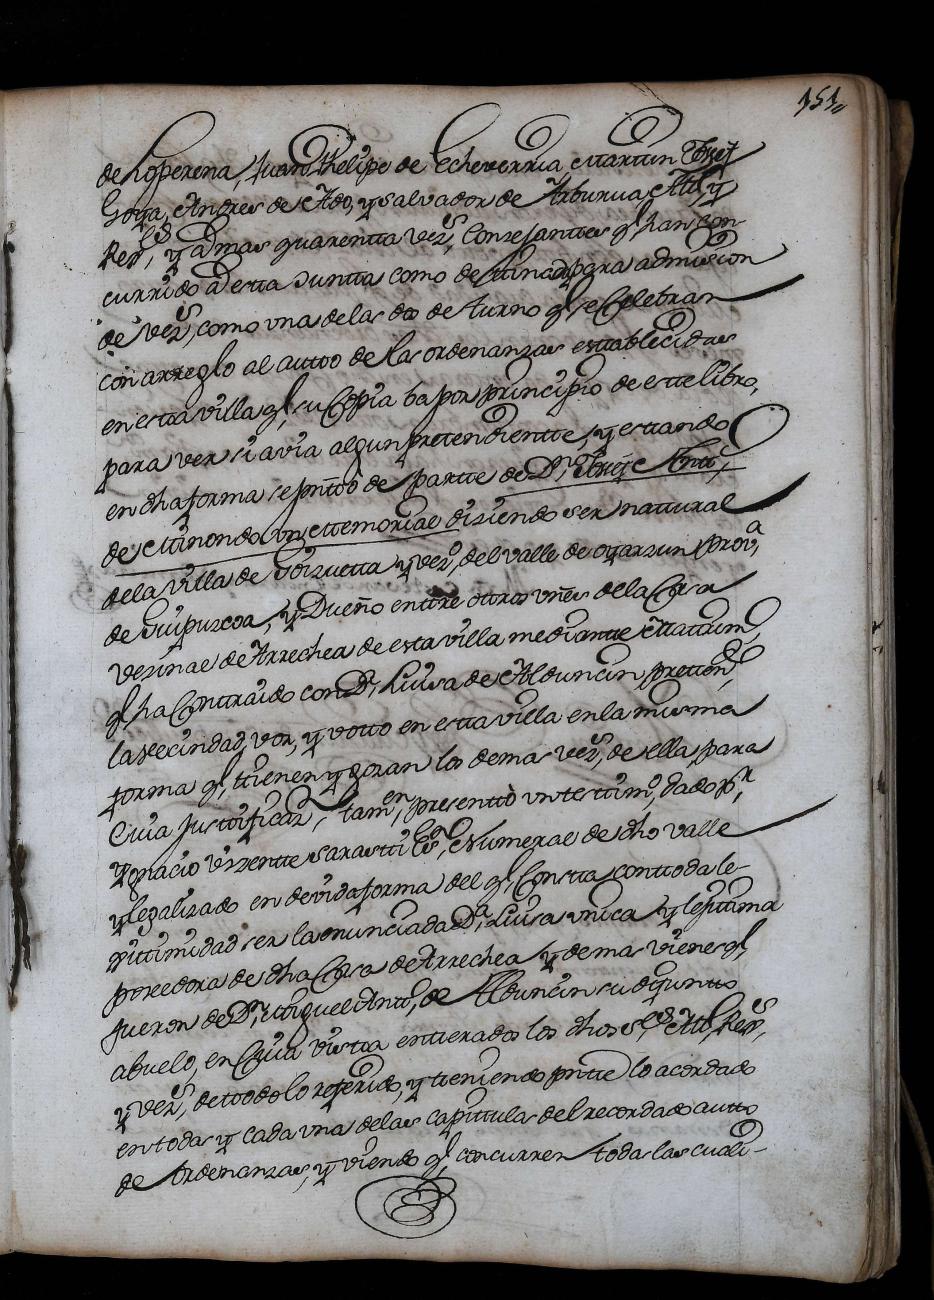 151,,
de Loperena, Juan Phelipe de Echeverria, Martin Joseph
Goya, Andres de Ado, y Salvador de Arburua, Alle, y
Rexs, y a mas quarenta vezs, Consejantes ql, han con-
currido a esta Junta como destinada para admision
de vezs, como una de las dos de turno ql, se Celebran
con arreglo al autto de las ordenanzas establecidas
en esta villa ql, su Copia ba por principio de este libro,
para ver si avia algun pretendientte, y estando
en dha forma se pntó de partte de Dn, Joseph Antt,
de Minondo un Memorial diziendo ser nattural
de la villa de Goizuetta y vezo, del valle de oyarzun Prova,
de Guipuzcoa, y Dueño enttre ottros vnes de la Casa
vezinal de Arrechea de esta villa mediantte Mattrim,
ql, ha Contraido con Da, Luisa de Alduncin, pretton,do
la vecindad, voz, y votto en estta villa en la misma
forma ql, ttienen y gozan los demas vezs, de ella, para
Cuia Justtificaz, tamn, presenttó un testtim, dado pr,
Ygnacio Vizentte Sarastti Esno, Numeral de dho valle
y legalizado en devida forma del ql, Constta con ttoda le-
xittimidad ser la enunciada Da, Luisa unica y lejitima
poseedora de dha Casa de Arrechea y demas vienes ql,
fueron de Dn, Miguel Antt, de Alduncin su difuntto
abuelo, en Cuia vistta entterados los dhos Sres Alle, Rexs,
y vezs, de ttodo lo referido, y tteniendo pntte lo acordado
en todas y cada una de las capittulas del recordado autto
de ordenanzas, y viendo ql, concurren todas las cuali-